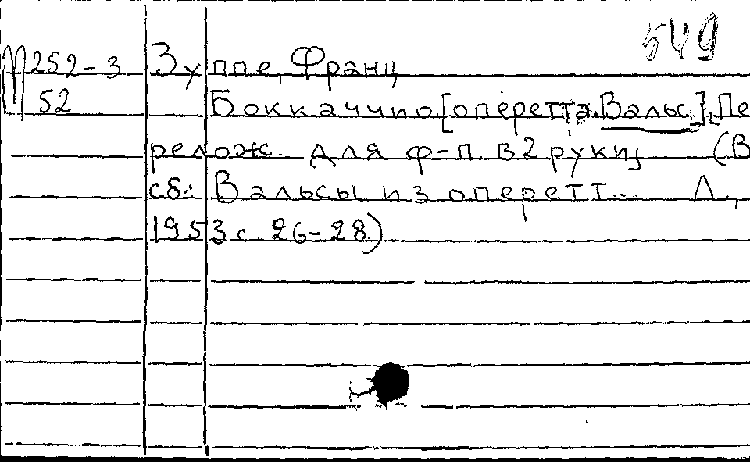 549
М252-3 Зуппе, Франц
52 Боккаччио [оперетта. Вальс]. Пе
релож. для ф-п. в 2 руки, (В
сб.: Вальсы из оперетт... Л.,
1953 с. 26-28)